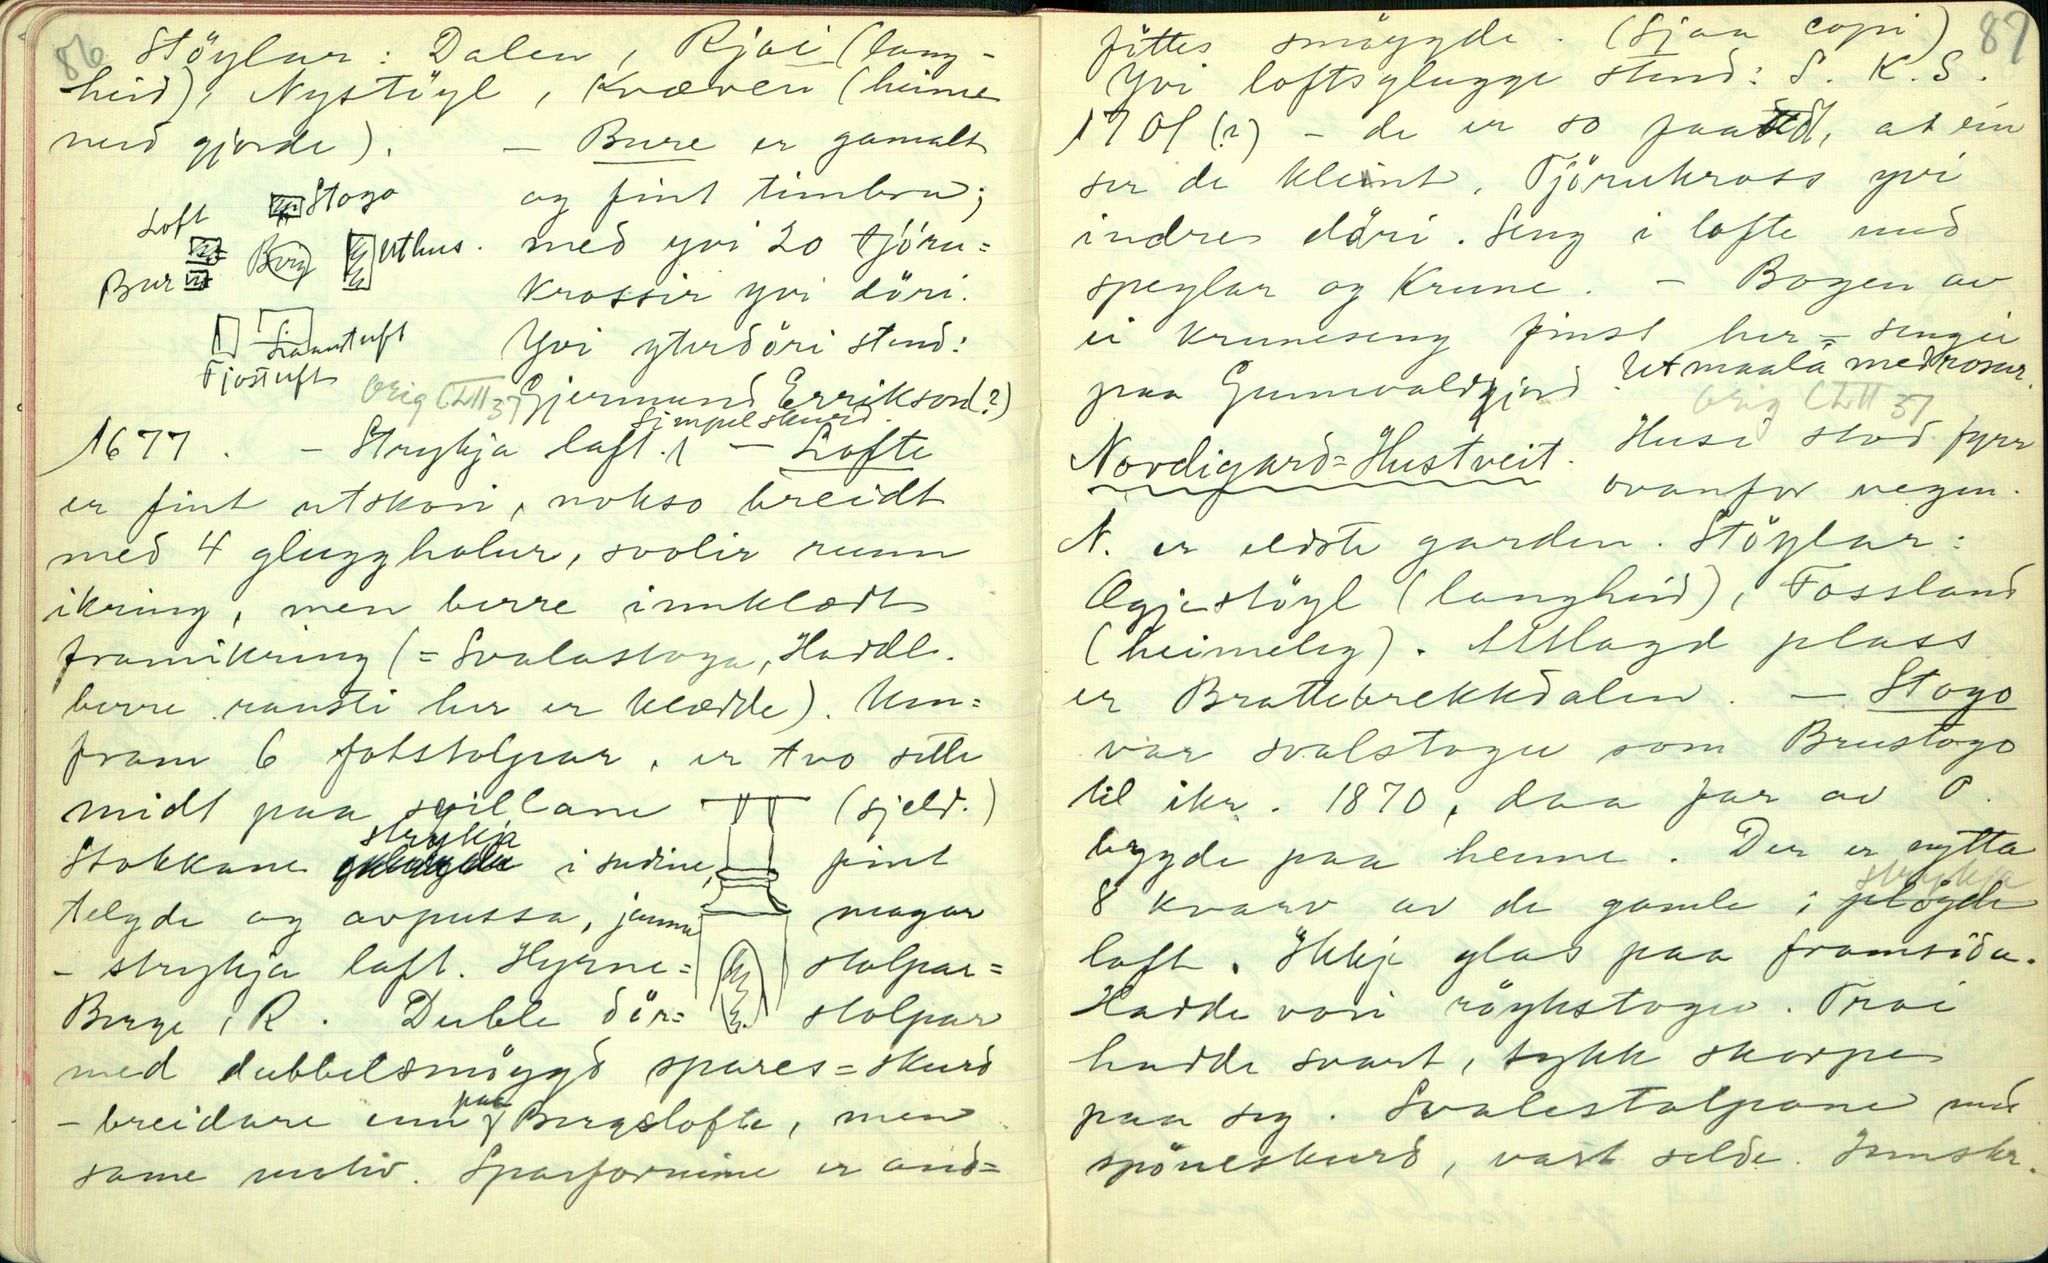 86
Støylar: Dalen, Rjåi (lang-
heid), Nystøyl, Kvæven (heime
med gjorde). — Bure er gamalt
og fint timbra;
med yvi 20 tjøru=
krossir yvi døri.
Yvi yterdøri stend:
Gjermund Errikson (?)
Loft
Stogo
Berg
Uthus.
Bur
Fjostuft
orig CLII 37
simpel skurd.
1677. — Strykja laft. — Lofte
er fint utskori, nokso breidt
med 4 glugghalur, svolir runn
ikring, men berre innklædt
framikring (= Svalastoga, Haddl.
berre rausti her er klædde). Un=
fram 6 fotstolpar, er tvo sette
midt paa svillane (sjeld.)
Stokkane strykja i sudine, fint
telgde og avpussa, jamne magar
- strykja laft. Hyrne= stolpar=
Berge, R. Duble dør= stolpar
med dubbelsmøygd spares=skurd
- breidare enn paa Bergslofte, men
same motiv. Sparfornine er and=
87
fittes smøygde. (Sjaa copi)
Yvi loftsglugge stend: S. K. S.
1701 (?) — de er so faatt, at ein
ser de kleint. Tjørukross yvi
indre døri. Seng i lofte med
speglar og krune. — Bogen av
ei kruneseng finst her = sengei
paa Gunnvaldgjord. Utmaala med rosur.
orig CLII 37
Nordigard=Hustveit. Husi stod fyrr
ovanfor vegen.
N. er eldste garden. Støylar:
Øgjestøyl (langheid), Fossland
(heimeleg). Utlagd plass
er Brattebrekkdalen. — Stogo
var svalstoge som Brustogo
til ikr. 1870, daa far av O.
bygde paa henne. Der er nytta
8 kvarv av de gamle i strykja
laft. Ikkje glas paa framsida.
Hadde vori røykstoge. Troi
hadde svart, tykk skorpe
paa seg. Svalestolpane med
spøneskurd, vart selde. Innskr.